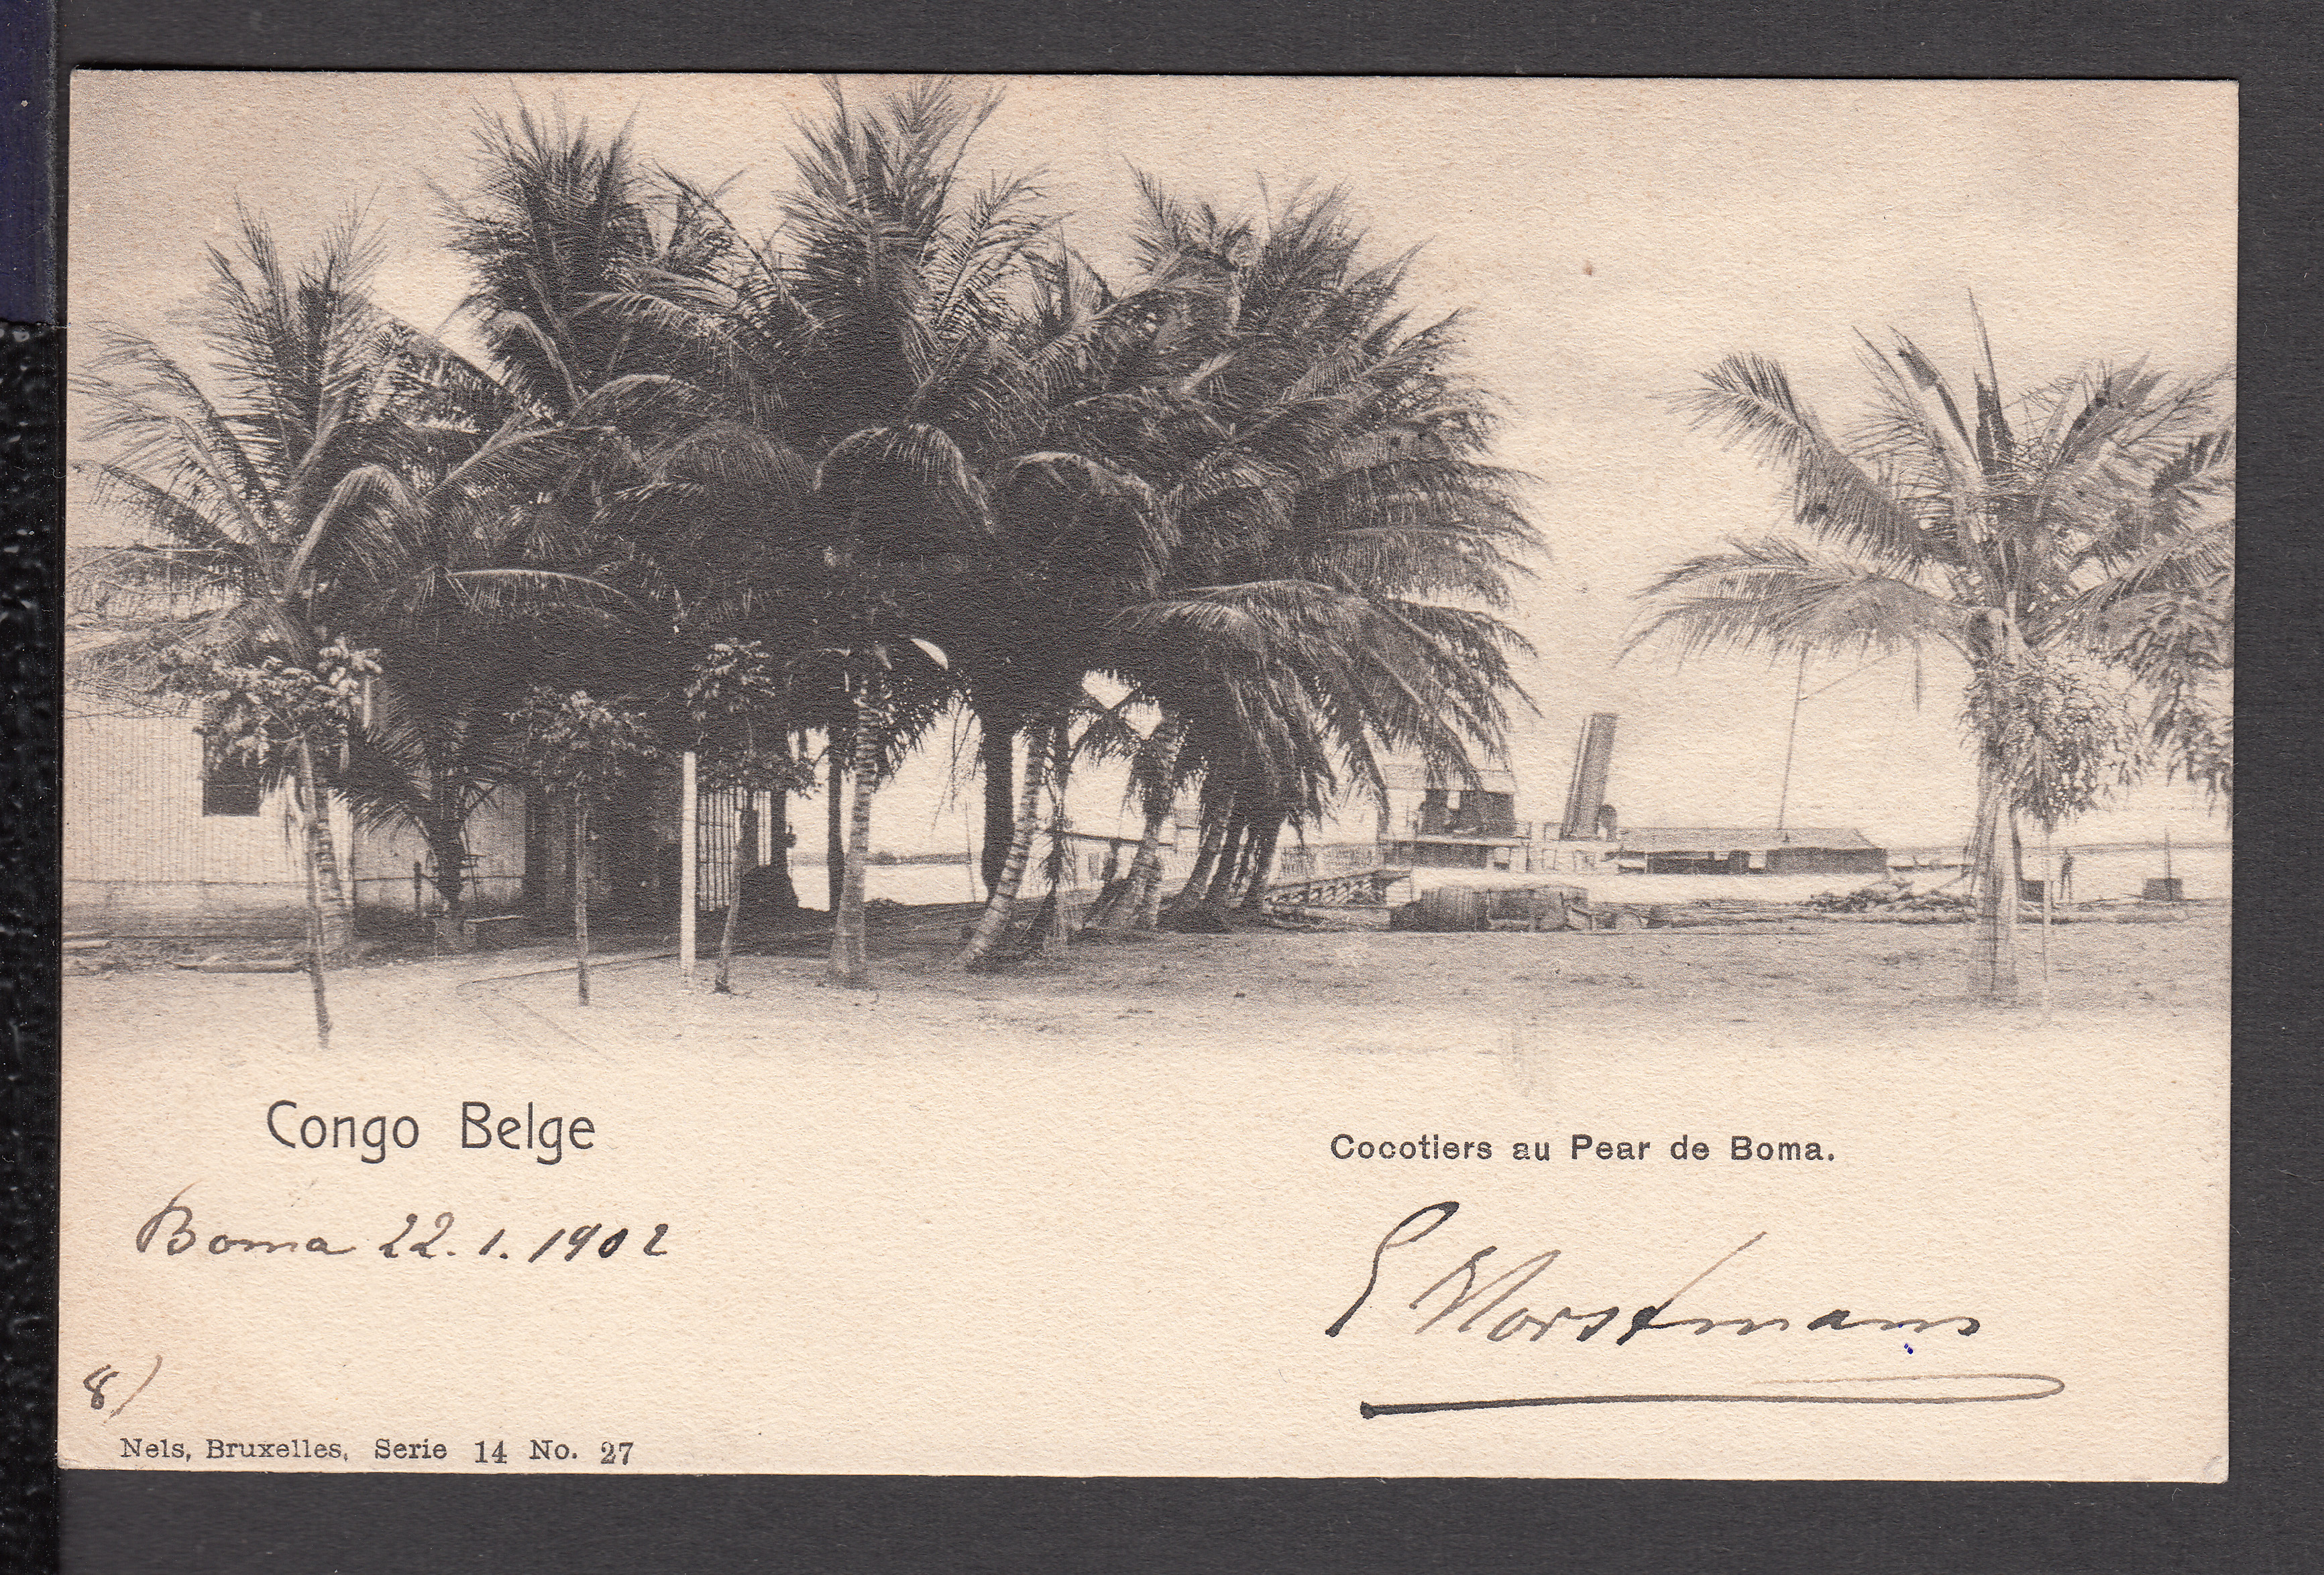 Congo Belge
Cocotiers au Pear de Boma.
Boma 22.1.1902
8)
Nels, Bruxelles, Serie 14 No. 27